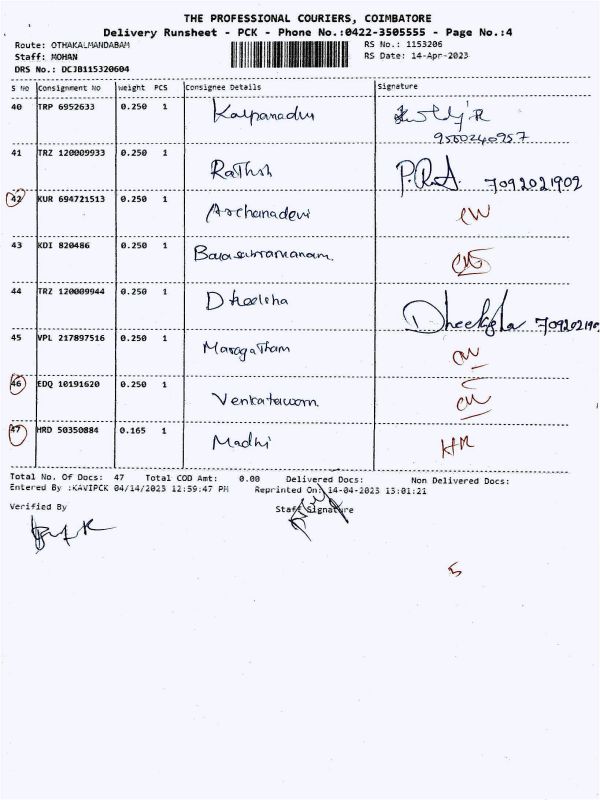 THE PROFESSIONAL COURIERS, COIMBATORE
Delivery Runsheet - PCK - Phone No.:0422-3505555 - Page No.:4
Route: OTHAKALMANDABAM RS No.: 1153206
Staff: MOHAN RS Date: 14-Apr-2023
DRS No.: DCJB115320604
S No Consignment No Weight PCS Consignee Details Signature
40 TRP 6952633 0.250 1 Kalpanadevi
9500240957
41 TRZ 120009933 0.250 1 Rathish 7092021902
42 KUR 694721513 0.250 1 Archanadevi
43 KDI 820486 0.250 1 Balasubramaniam
44 TRZ 120009944 0.250 1 Dheeksha Dheeksha
45 VPL 217897516 0.250 1 Maragatham
46 EDQ 10191620 0.250 1
47 HRD 50350884 0.165 1 Madhi
Total No. Of Docs: 47 Total COD Amt: 0.00 Delivered Docs: Non Delivered Docs:
Entered By :KAVIPCK 04/14/2023 12:59:47 PM Reprinted On: 14-04-2023 13:01:21
Verified By Staff Signature
5